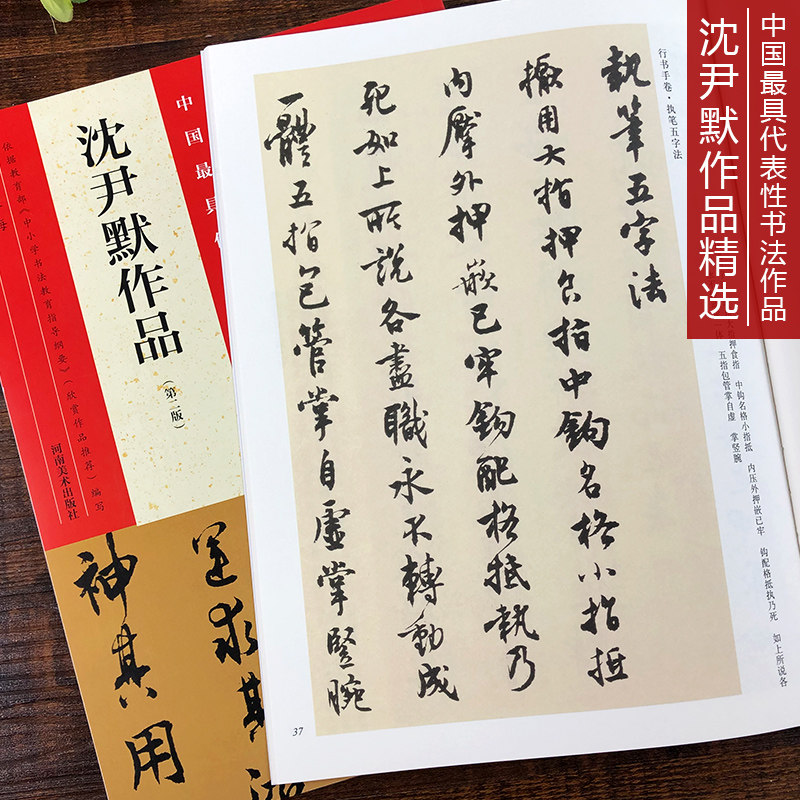 中国最具代表性书法作品
沈尹默作品精选
行书手卷·执笔五字法
執筆五字法
擫用大指押食指中鉤名格小指抵
内壓外押嵌已牢鉤配格抵執乃
死如上所說各盡職永不轉動成
一體五指包管掌自虛掌豎腕
指押食指 中钩名格小指抵 内压外押嵌已牢 钩配格抵执乃死 如上所说各
体 五指包管掌自虚 掌竖腕
37
中国最具
沈尹默作品
（第二版）
依据教育部《中小学书法教育指导纲要》（欣赏作品推荐）编写
河南美术出版社
神其用